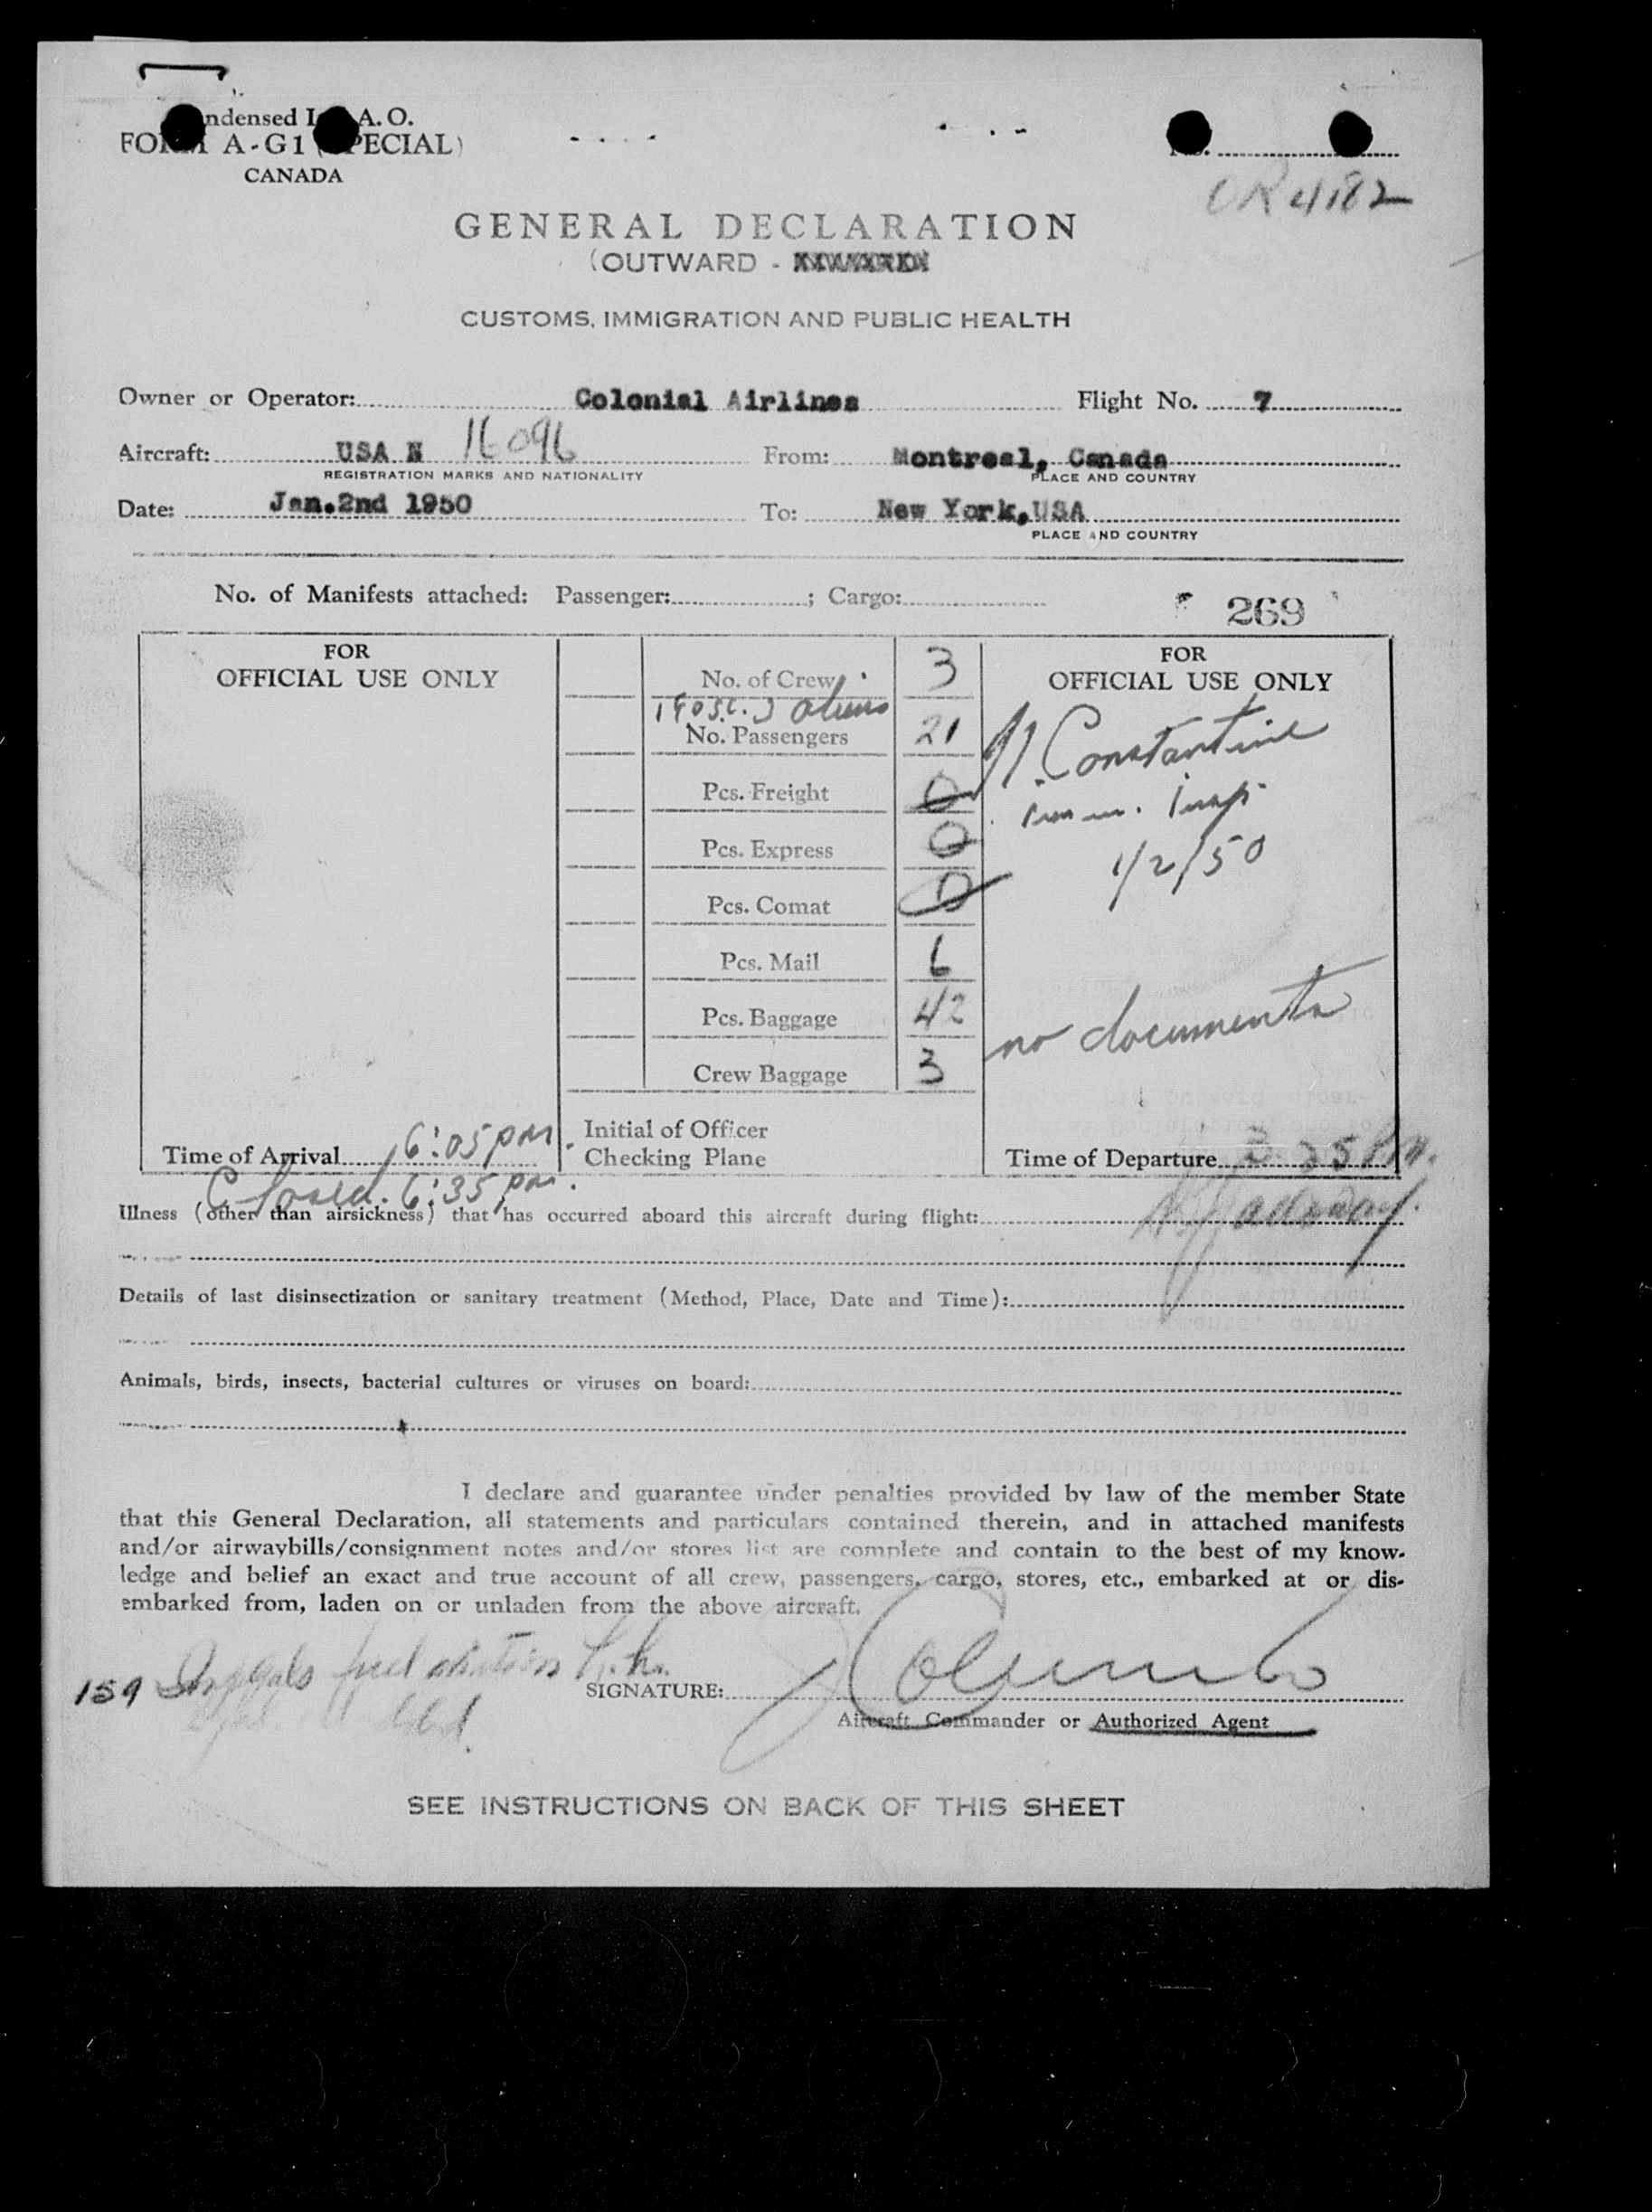 ndensed I A. O.
FORM A-G1 (SPECIAL)
CANADA
No.
4182
GENERAL DECLARATION
(OUTWARD -
CUSTOMS, IMMIGRATION AND PUBLIC HEALTH
Owner or Operator: Colonial Airlines Flight No. 7
Aircraft: USA N 16096 From: Montreal, Canada
REGISTRATION MARKS AND NATIONALITY PLACE AND COUNTRY
Date: Jan.2nd 1950 To: New York,USA
PLACE AND COUNTRY
No. of Manifests attached: Passenger: ; Cargo:
269
FOR
OFFICIAL USE ONLY
No. of Crew 3
aliens
No. Passengers 21
Pcs. Freight 0
Pcs. Express 0
Pcs. Comat 0
Pcs. Mail 6
Pcs. Baggage 42
Crew Baggage 3
FOR
OFFICIAL USE ONLY
Constantine
Imm. Insp.
1/2/50
no documents
Time of Arrival 6:05 pm.
Closed. 6:35 pm.
Initial of Officer
Checking Plane
Time of Departure 3 25 Pm.
Illness (other than airsickness) that has occurred aboard this aircraft during flight:
Details of last disinsectization or sanitary treatment (Method, Place, Date and Time):
Animals, birds, insects, bacterial cultures or viruses on board:
I declare and guarantee under penalties provided by law of the member State
that this General Declaration, all statements and particulars contained therein, and in attached manifests
and/or airwaybills/consignment notes and/or stores list are complete and contain to the best of my know-
ledge and belief an exact and true account of all crew, passengers, cargo, stores, etc., embarked at or dis-
embarked from, laden on or unladen from the above aircraft.
159 gals fuel
SIGNATURE:
Aircraft Commander or Authorized Agent
SEE INSTRUCTIONS ON BACK OF THIS SHEET